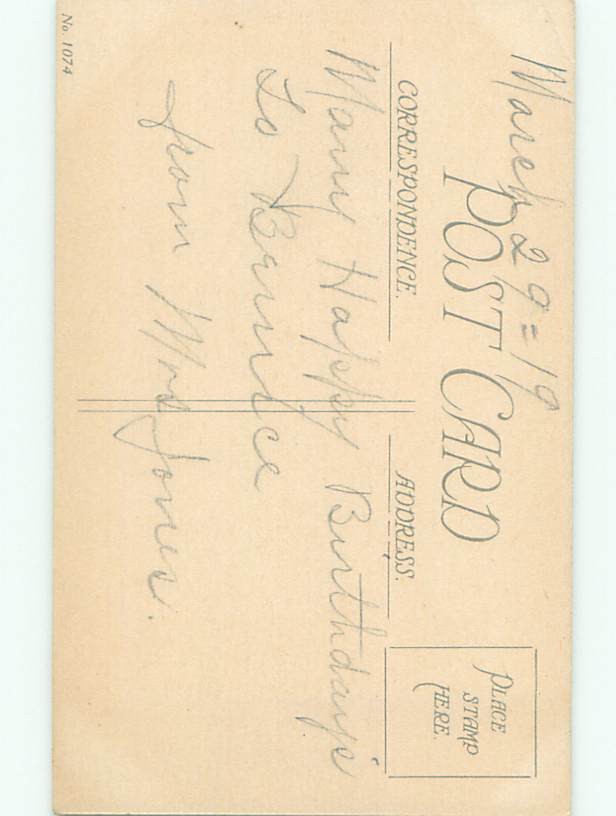 March 29=19
POST CARD
CORRESPONDENCE.
ADDRESS.
PLACE
STAMP
HERE.
Many Happy Birthdays
To Bernice
from Mrs Jones.
No. 1074